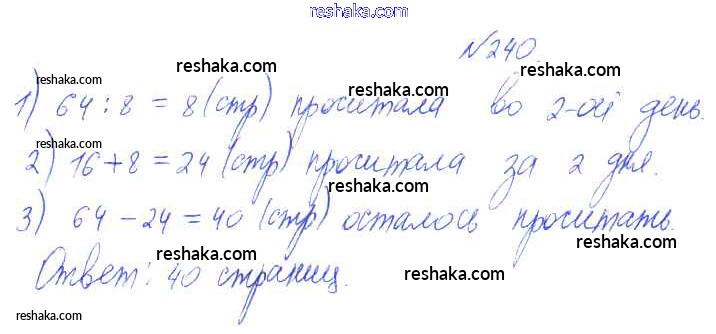 reshaka.com
№240.
reshaka.com reshaka.com reshaka.com
1) 64 : 8 = 8 (стр) прочитала во 2-ой день.
reshaka.com reshaka.com reshaka.com
2) 16 + 8 = 24 (стр) прочитала за 2 дня.
reshaka.com reshaka.com reshaka.com
3) 64 - 24 = 40 (стр) осталось прочитать.
reshaka.com reshaka.com
Ответ: 40 страниц.
reshaka.com
reshaka.com